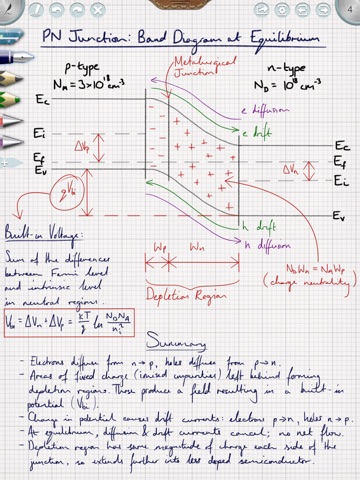 4
PN Junction: Band Diagram at Equilibrium
p-type
N_A = 3×10^18 cm^-3
Metallurgical
Junction
n-type
N_D = 10^18 cm^-3
e diffusion
e drift
E_c
E_i
E_f
E_v
ΔV_p
qV_bi
E_c
E_f
E_i
E_v
ΔV_n
h drift
h diffusion
W_p
W_n
Depletion Region
N_D W_n = N_A W_p
(charge neutrality)
Built-in Voltage:
Sum of the differences
between Fermi level
and intrinsic level
in neutral regions.
V_bi = ΔV_n + ΔV_p = kT/q ln N_D N_A / n_i^2
Summary
- Electrons diffuse from n→p, holes diffuse from p→n.
- Areas of fixed charge (ionised impurities) left behind forming
depletion regions. These produce a field resulting in a built-in
potential (V_bi).
- Change in potential causes drift currents: electrons p→n, holes n→p.
- At equilibrium, diffusion & drift currents cancel; no net flow.
- Depletion region has same magnitude of charge each side of the
junction, so extends further into less doped semiconductor.